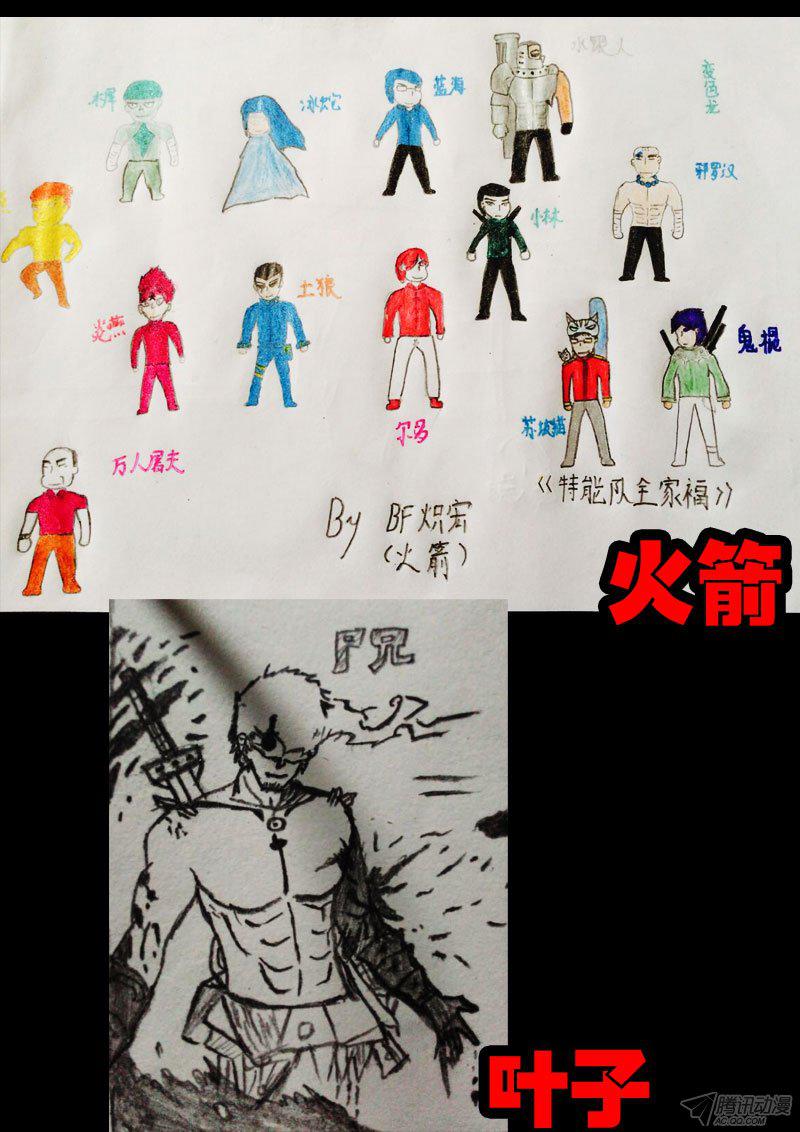 水银人
变色龙
蓝海
冰蛇
邪罗汉
小林
土狼
炎燕
鬼棍
尔多
苏坡猫
万人屠夫
《特能队全家福》
By BF炽宏
(火箭)
火箭
尸兄
叶子
腾讯动漫
AC.QQ.COM